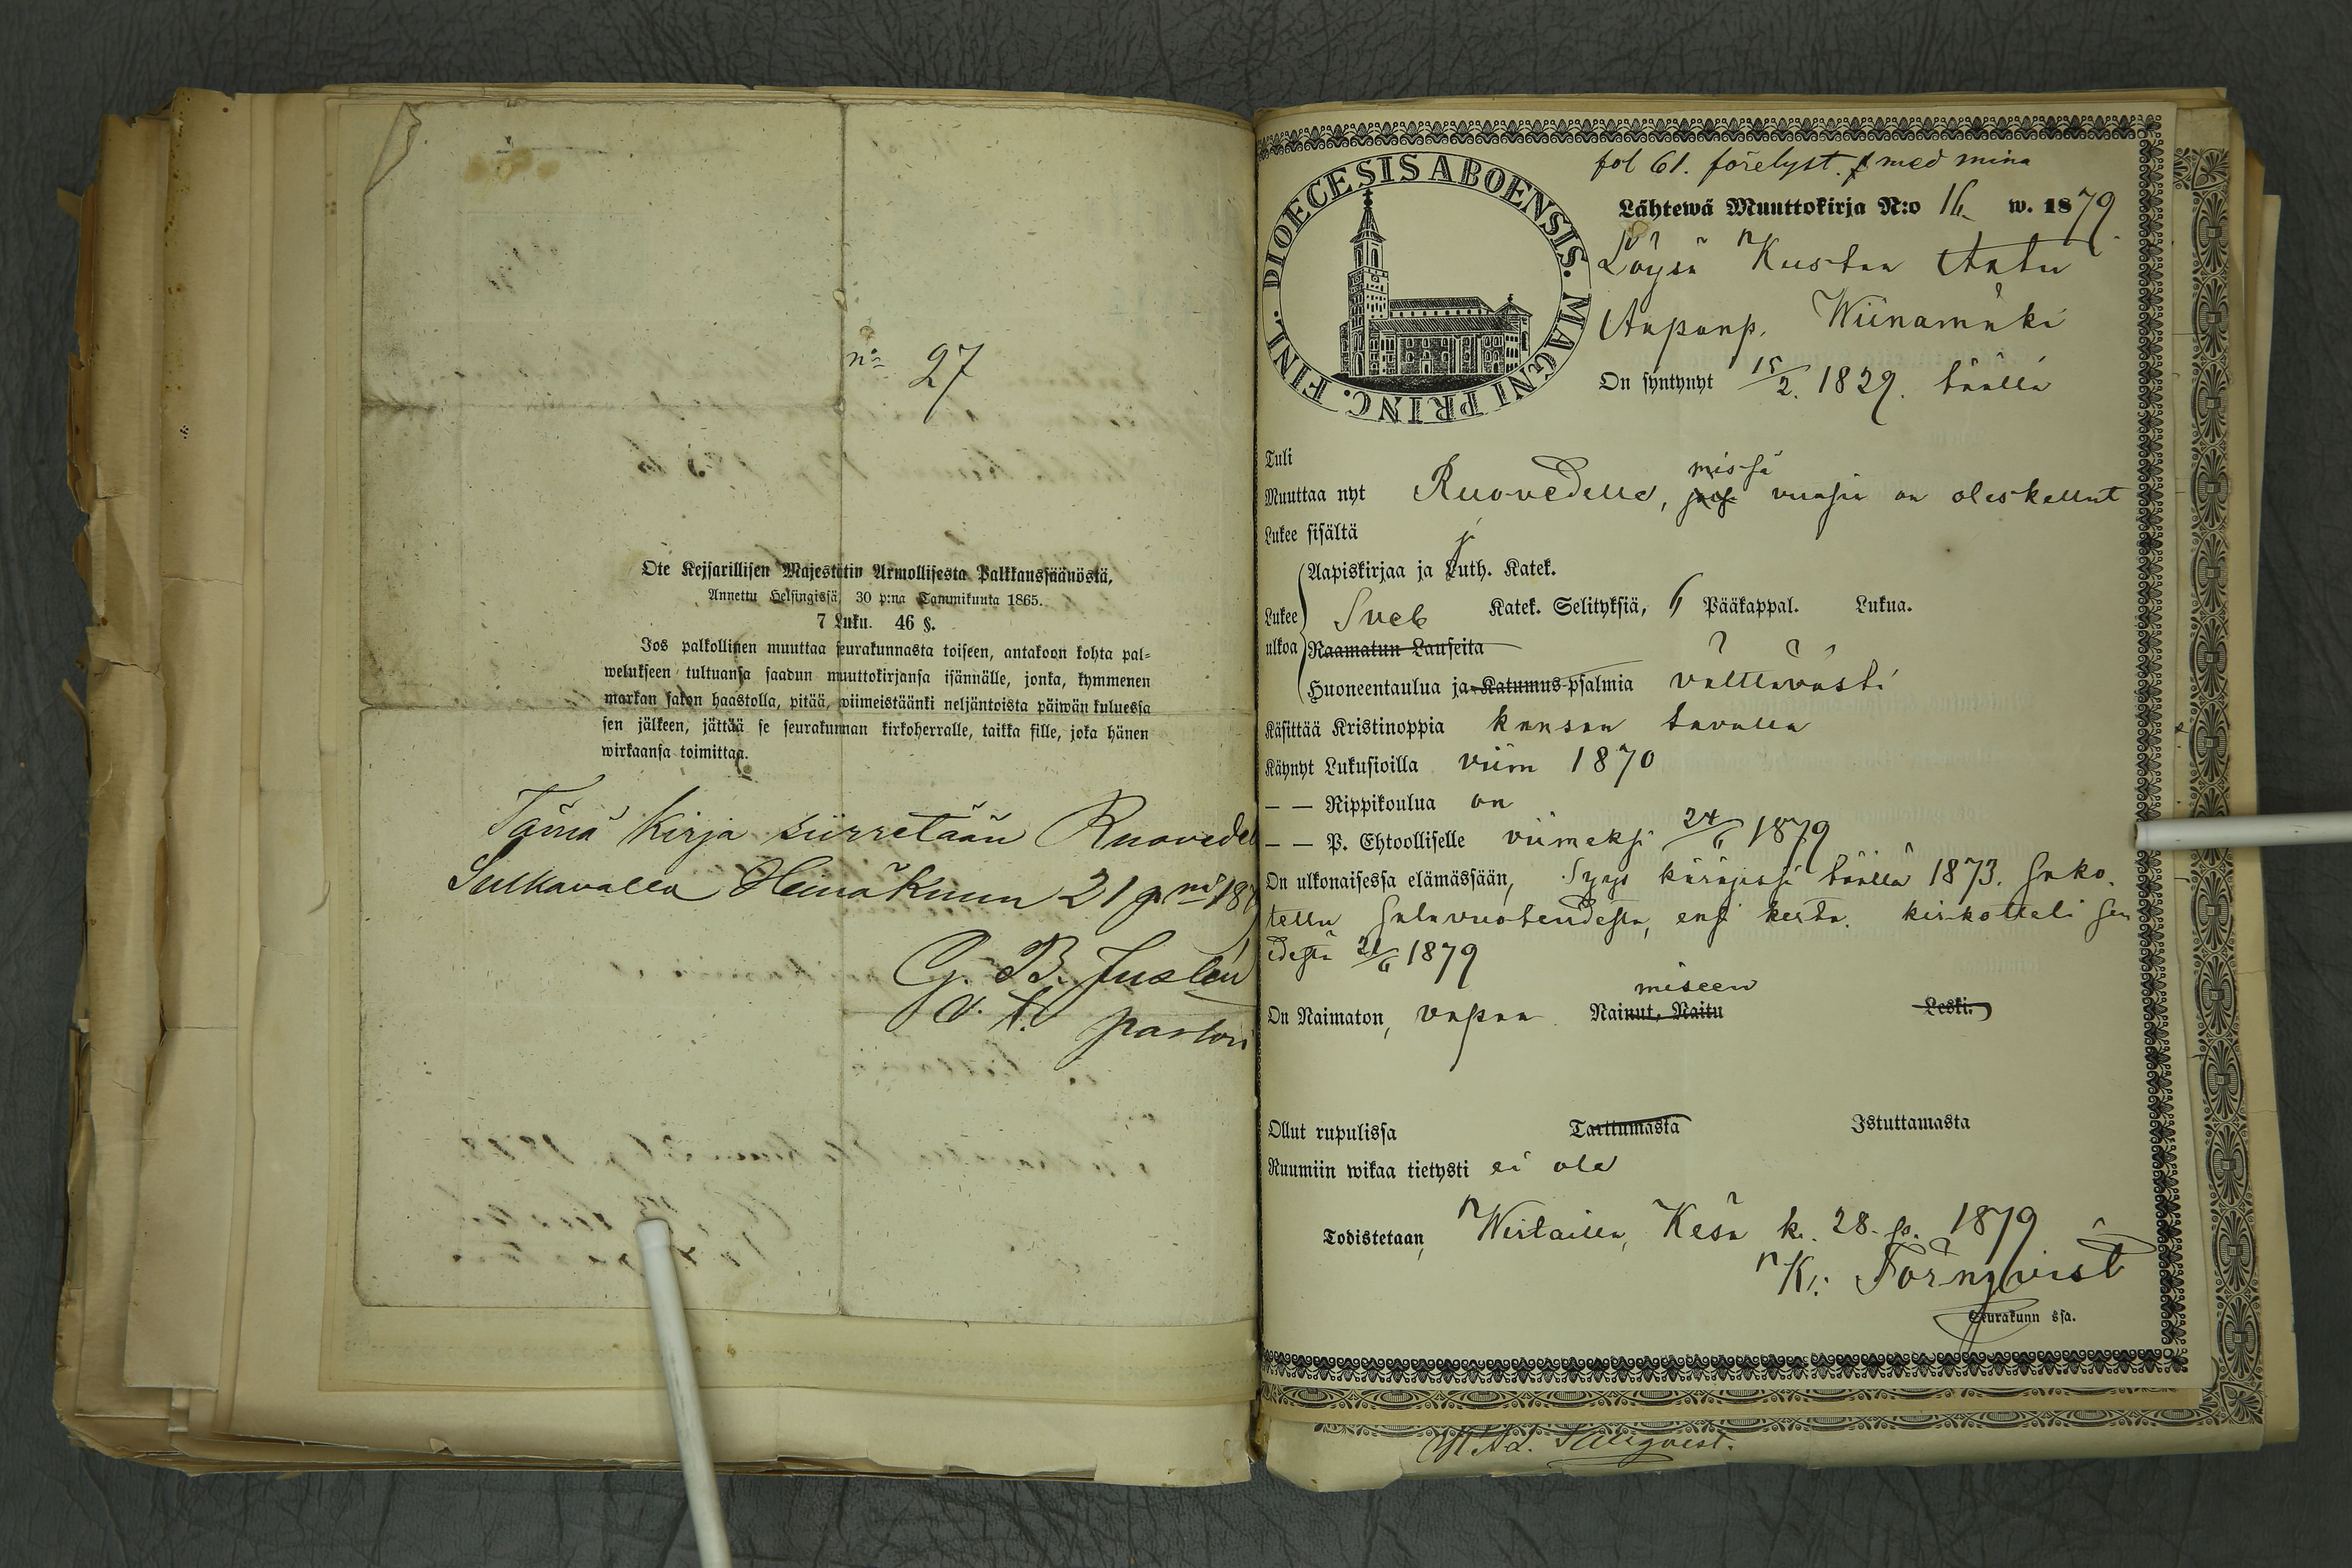 nº 27
Ote Keisarillisen Majestetin Armollisesta Palkkaussäänöstä,
Annettu Helsingissä, 30 p:na Tammikuuta 1865.
7 Luku. 46 §.
Jos palkollinen muuttaa seurakunnasta toiseen, antakoon kohta pal=
welukseen tultuansa saadun muuttokirjansa isännälle, jonka, kymmenen
markan sakon haastolla, pitää, wiimeistäänki neljäntoista päiwän kuluessa
sen jälkeen, jättää se seurakunnan kirkoherralle, taikka sille, joka hänen
wirkaansa toimittaa.
Tämä Kirja siirretään Ruovedel
Sulkavalla Heinäkuun 21 p nä 187
G. B. Juslén
v. t. pastori
DIOECESIS ABOENSIS. MAGNI PRINC. FINL.
fol 61. förelyst. med mina
Lähtewä Muuttokirja N:o 16 w. 1879.
Löysä Kustaa Aatu
Aapanp. Wiinamäki
On syntynyt 15/2. 1829. täällä
Tuli
Muuttaa nyt Ruovedelle, missä vuosia on oleskellut
Lukee sisältä
Aapiskirjaa ja Luth. Katek.
Lukee ulkoa
Sveb Katek. Selityksiä, 6 Pääkappal. Lukua.
Raamatun Lauseita
Huoneentaulua ja Katumus-psalmia välttävästi
Käsittää Kristinoppia kansan tavalla
Käynyt Lukusioilla viim 1870
— — Rippikoulua on
— — P. Ehtoolliselle viimeksi 24/6 1879
On ulkonaisessa elämässään, Syys käräjissä täällä 1873. sako.
tettu salavuoteudesta, ensi kerta. kirkotteli sen
edestä 21/6 1879
On Naimaton, vapaa Nainut, Naitu miseen Leski.
Ollut rupulissa Tarttumasta Istuttamasta
Ruumiin wikaa tietysti ei ole
Todistetaan, Wirtailla, Kesä k. 28 p. 1879
K. Törnqvist
Seurakunn ssa.